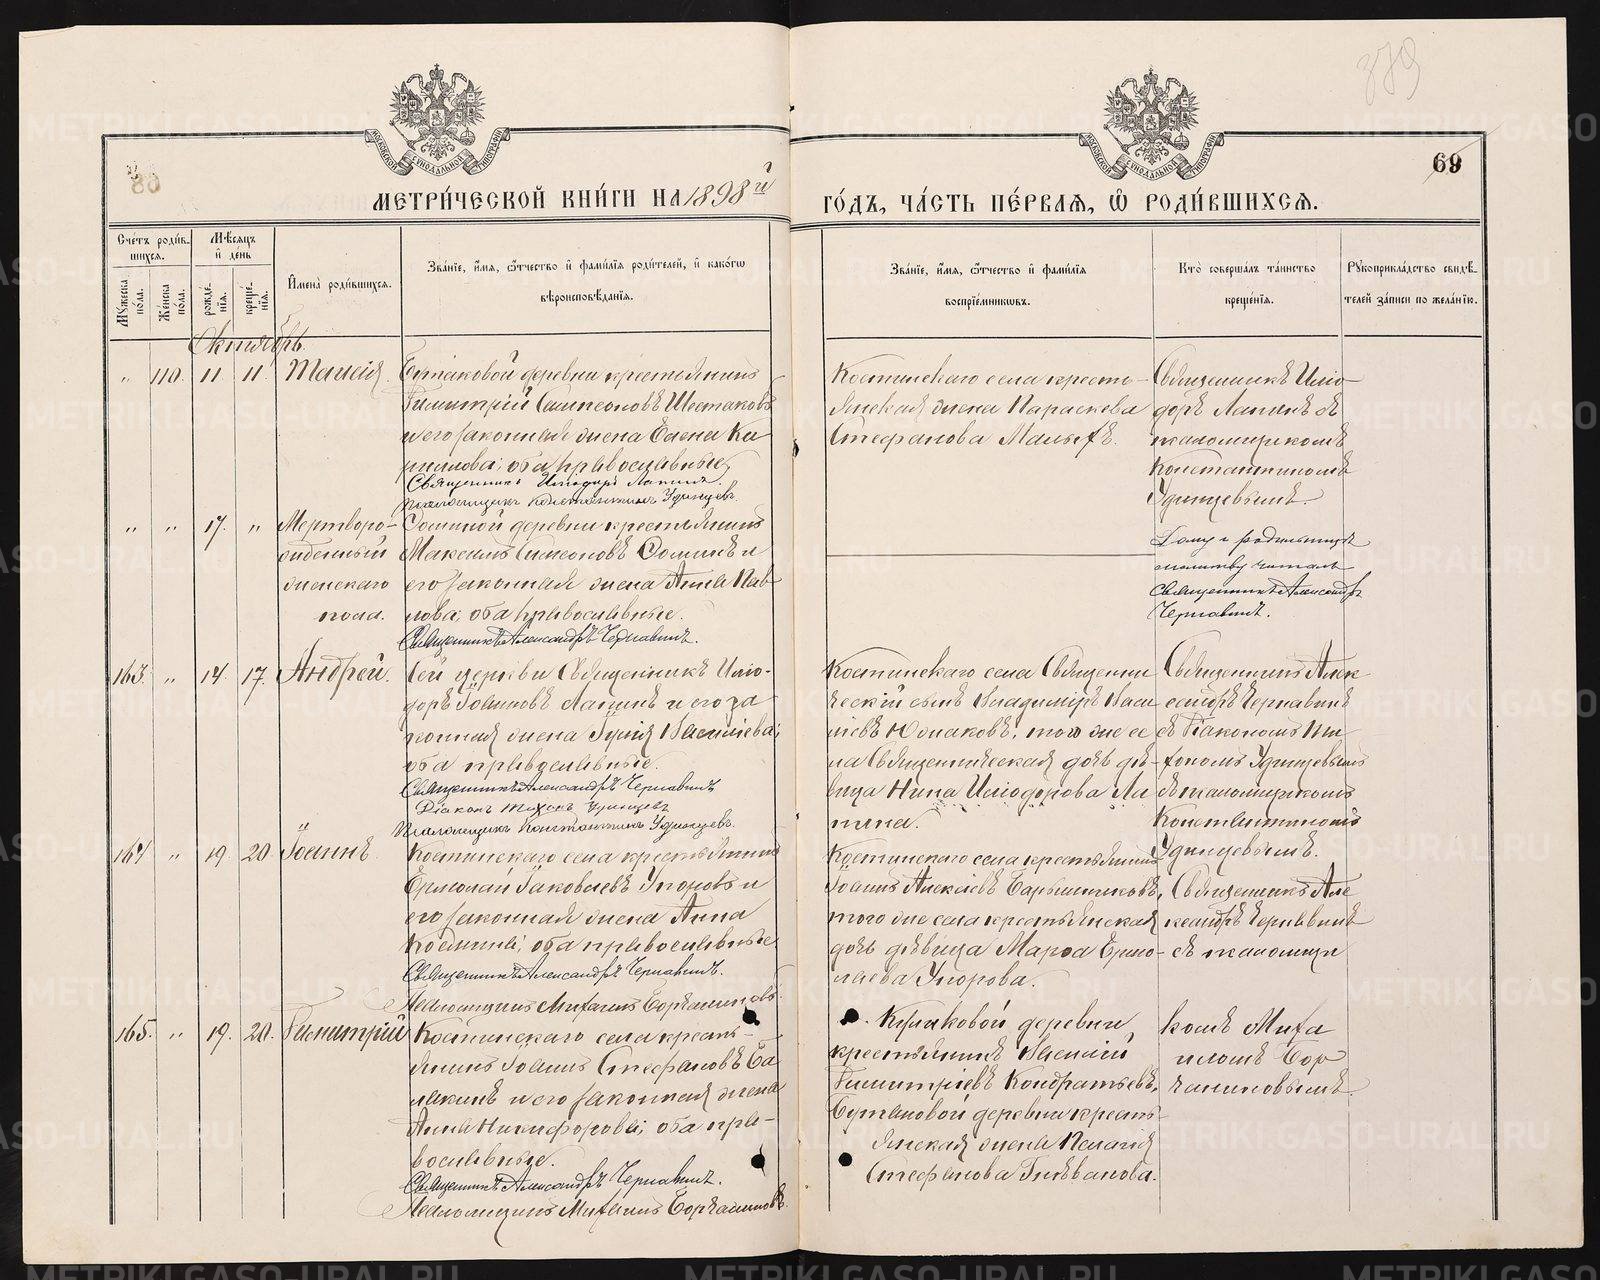 379
МОСКОВСКОЙ СѴНОДАЛЬНОЙ ТИПОГРАФІИ
МОСКОВСКОЙ СѴНОДАЛЬНОЙ ТИПОГРАФІИ
69
МЕТРИ́ЧЕСКОЙ КНИ́ГИ НА 1898й
ГО́ДЪ, ЧА́СТЬ ПЕ́РВАѦ, Ѡ҆ РОДИ́ВШИХСѦ.
Сче́тъ роди́в-
шихсѧ.
Мꙋ́жеска по́ла.
Же́нска по́ла.
Мѣ́сѧцъ и҆ де́нь
рожде́-нїѧ.
креще́-нїѧ.
И҆мена̀ роди́вшихсѧ.
Зва́нїе, и҆́мѧ, ѻ҆́тчество и҆ фами́лїѧ роди́телей, и҆ како́гѡ
вѣроисповѣ́данїѧ.
Зва́нїе, и҆́мѧ, ѻ҆́тчество и҆ фами́лїѧ
воспрїе́мникѡвъ.
Кто̀ соверша́лъ та́инство
креще́нїѧ.
Рꙋкоприкла́дство свидѣ́-
телей за́писи по жела́нїю.
Октябрь.
" 110. 11. 11. Таисія
деревни крестьянинъ
Димитрій Сампсоновъ Шестаковъ
и его законная жена Елена Ки
риллова; оба православные,
Священникъ Иліодоръ Лапинъ.
Псаломщикъ Константинъ Удинцевъ.
Костинскаго села кресть-
янская жена Параскева
Стефанова Малыхъ.
Священникъ Иліо-
доръ Лапинъ съ
псаломщикомъ
Константиномъ
Удинцевымъ.
" " 17. " Мертворо-
жденный
женскаго
пола.
деревни крестьянинъ
Максимъ Симеоновъ Соминъ и
его законная жена Анна Пав
лова; оба православные.
Священникъ Александръ Чернавинъ.
молитву читалъ
Священникъ Александръ
Чернавинъ.
163. " 14. 17. Андрей.
Сей церкви Священникъ Иліо-
доръ Іоанновъ Лапинъ и его за
конная жена Васильева;
оба православные.
Священникъ Александръ Чернавинъ
Діаконъ Тихонъ Удинцевъ
Псаломщикъ Константинъ Удинцевъ.
Костинскаго села Священни
ческій сынъ Владиміръ Васи
ліевъ того же се
ла Священническая дочь дѣ-
вица Нина Иліодорова Ла
пина.
Священникъ Алек
сандръ Чернавинъ
съ Діакономъ Ти
хономъ Удинцевымъ
и псаломщикомъ
Константиномъ
Удинцевымъ.
164 " 19. 20. Іоаннъ.
Костинскаго села крестьянинъ
Ермолай Іаковлевъ Упоровъ и
его законная жена Анна
Козмина; оба православные
Священникъ Александръ Чернавинъ.
Псаломщикъ Михаилъ
Костинскаго села крестьянинъ
Іоаннъ Алексіевъ Барышниковъ,
того же села крестьянская
дочь дѣвица Марѳа Ермо-
лаева Упорова.
Священникъ Але
ксандръ Чернавинъ
съ псаломщи
165. " 19. 20. Димитрій
Костинскаго села кресть-
янинъ Іоаннъ Стефановъ Ба
лакинъ и его законная жена
Анна Никифорова; оба пра-
вославные.
Священникъ Александръ Чернавинъ.
Псаломщикъ Михаилъ
Куликовой деревни
крестьянинъ Василій
Димитріевъ Кондратьевъ,
Бутаковой деревни кресть-
янская жена Пелагія
Стефанова
комъ Миха
иломъ